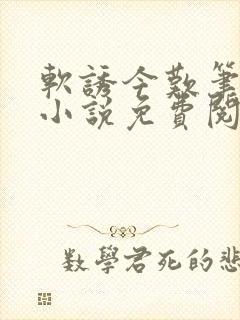 軟誘今歎筆
小說免費閱
數學君死的悲